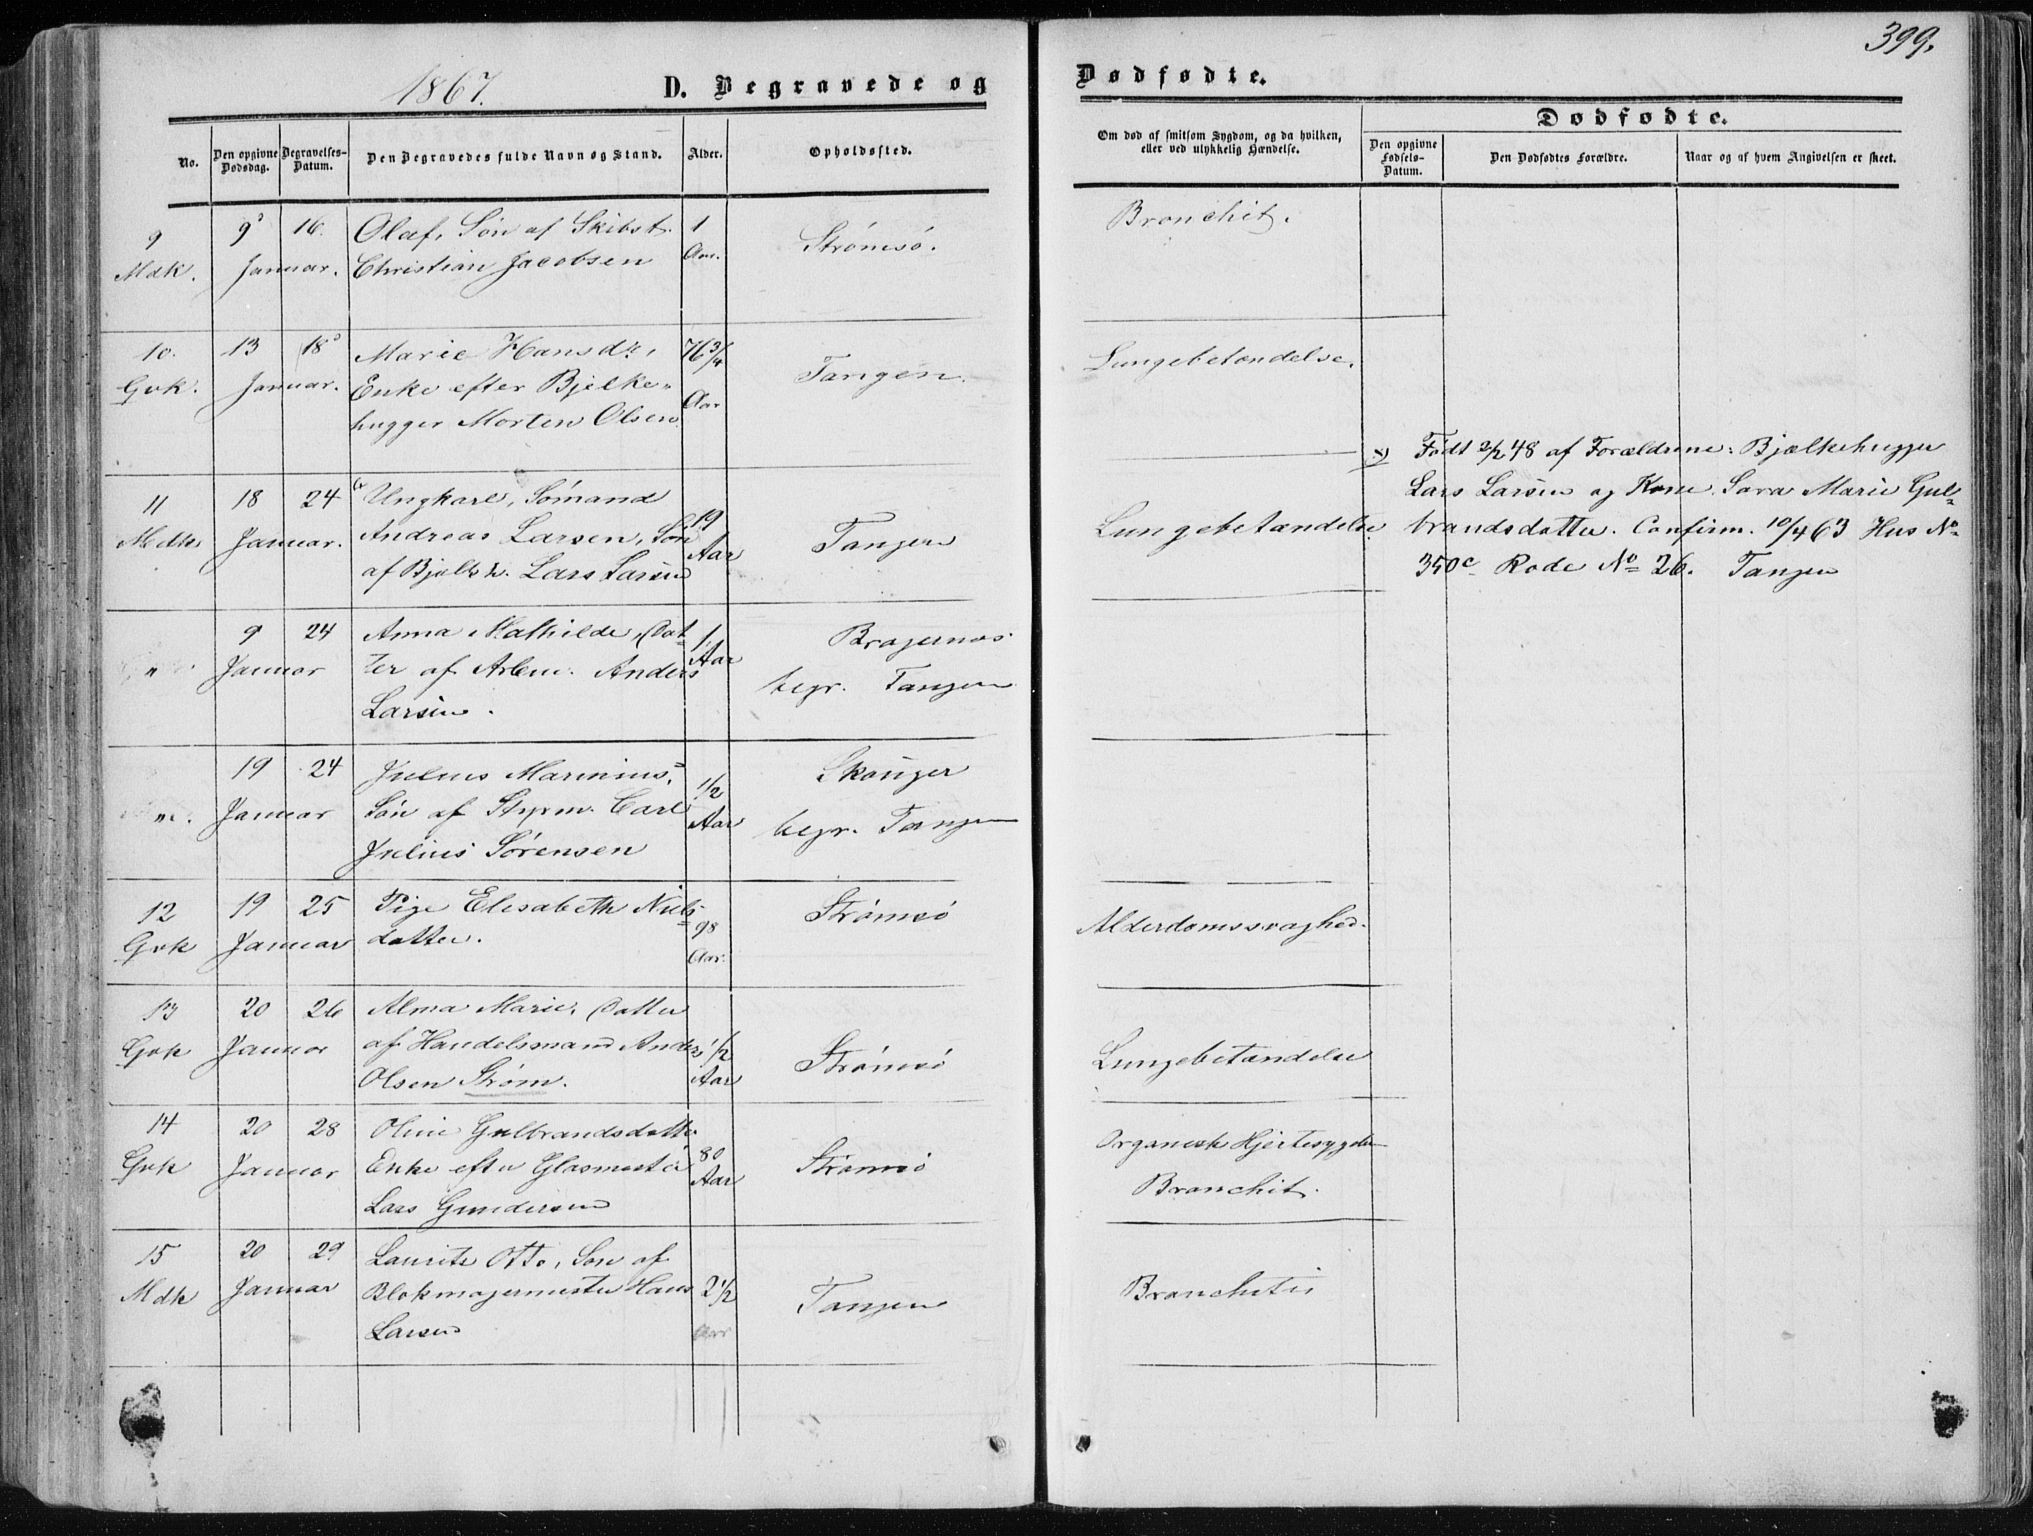 399.
1867.
D. Begravede og Dødfødte.
No.
Den opgivne Dødsdag.
Begravelses-Datum.
Den Begravedes fulde Navn og Stand.
Alder.
Opholdssted.
Om død af smitsom Sygdom, og da hvilken, eller ved ulykkelig Hændelse.
Dødfødte.
Den opgivne Fødsels-Datum.
Den Dødfødtes Forældre.
Naar og af hvem Angivelsen er skeet.
9 9 16. Olaf, Søn af Skibst. 1 Strømsø. Bronchit.
Mdk. Januar. Christian Jacobsen Aar.
10. 13 18 Marie Hansdr, 76 3/4 Tangen. Lungebetændelse.
Gvk. Januar. Enke efter Bjelke-
hugger Morten Olsen Aar
11 18 24 Ungkarl, Sømand 19 Tangen Lungebetændelse.
Mdk Januar. Andreas Larsen, Søn Aar
af Bjælkh. Lars Larsen
x) Født 2/2 48 af Forældrene: Bjælkehugger
Lars Larsen og Kone Sara Marie Gul-
brandsdatter. Confirm. 10/4 63 Hus No
350c Rode No 26. Tangen
" 9 24 Anna Mathilde, Dat- 1 Bragernæs
Januar ter af Arbm. Anders Aar begr. Tangen
Larsen.
". 19 24 Julius Marinius, 1/2 Skouger
Januar Søn af Styrm. Carl Aar begr. Tangen
Julius Sørensen
12 19 25 Pige Elisabeth Niels- 98 Strømsø Alderdomssvaghed.
Gvk Januar datter. Aar.
13 20 26 Alma Marie, Datter
Gvk Januar af Handelsmand Anders 1/2 Strømsø Lungebetændelse
Olsen Strøm. Aar
14 20 28 Oline Gulbrandsdatter Organisk Hjertesygdom
Gvk Januar Enke efter Glasmester 80 Aar Strømsø Bronchit.
Lars Gundersen
15 20 29 Laurits Otto, Søn af
Mdk Januar Blokmagermester Hans 2 1/2 Tangen Bronchitis
Larsen Aar